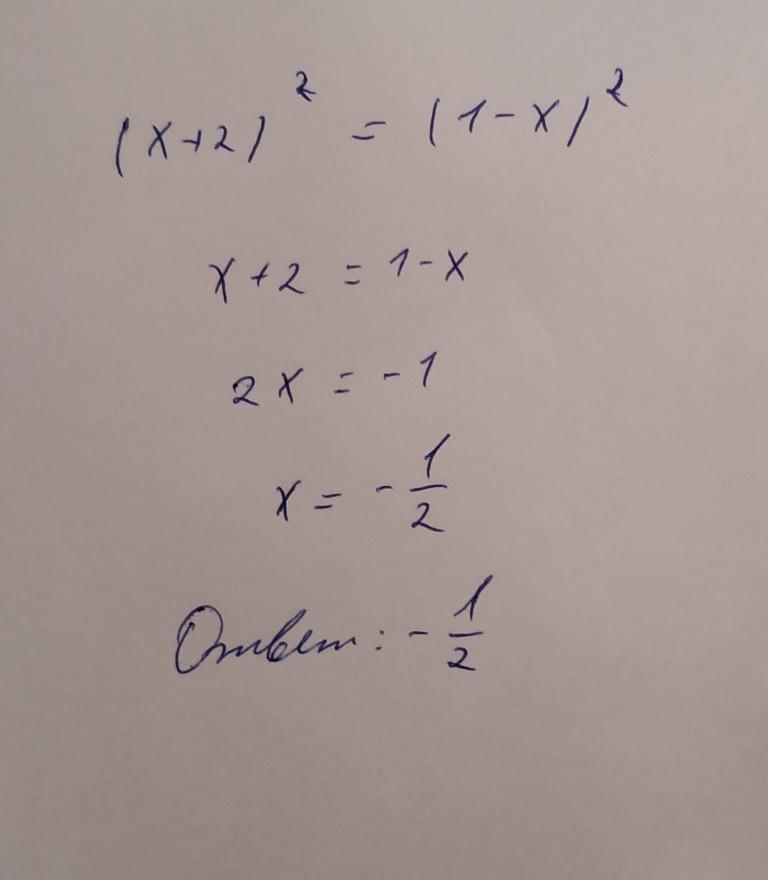 (x+2)² = (1-x)²
x+2 = 1-x
2x = -1
x = -1/2
Ответ: -1/2